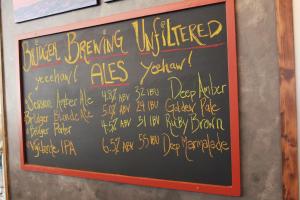 Bridger Brewing Unfiltered
yeeehaw! ALES Yeehaw!
Session Amber Ale 4.3% ABV 32 IBU Deep Amber
Bridger Blonde Ale 5.0% ABV 24 IBU Golden Pale
Bridger Porter 4.5% ABV 31 IBU Ruby Brown
Vigilante IPA 6.5% ABV 55 IBU Deep Marmalade